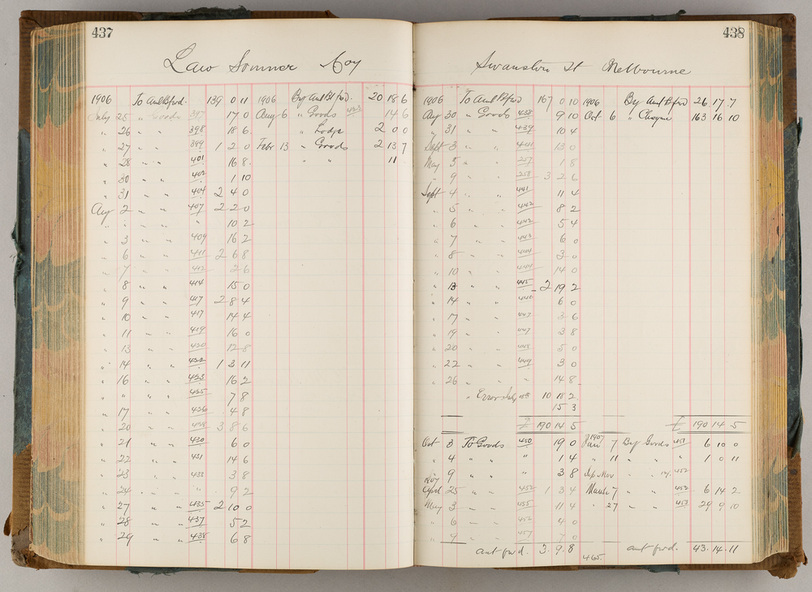 437
Law Somner & Coy
1906 To Amt Bford. 139 0 11 1906 By Amt Bt for. 20 18 6
July 25 " Goods 387 17 0 Aug 6 " Goods 14 6
" 26 " " 398 18 6 " Lodge 2 0 0
" 27 " " 399 1 2 0 Febr 13 " Goods 2 13 7
" 28 " " 401 16 8 " " 11
" 30 " " 1 10
" 31 " " 404 2 4 0
Aug 2 " " 407 2 2 0
" " " " " 10 2
" 3 " " 409 16 2
" 6 " " 411 2 6 8
" 7 " " 2 6
" 8 " " 414 15 0
" 9 " " 417 2 8 4
" 10 " " 417 14 4
" 11 " " 419 16 0
" 13 " " 420 12 8
" 14 " " 1 3 11
" 16 " " 423 16 2
" " " " 425 7 8
" 17 " " 426 4 8
" 20 " " 3 8 6
" 21 " " 430 6 0
" 22 " " 431 14 6
" 23 " " 433 3 8
" 24 " " " 9 2
" 27 " " 435 2 10 0
" 28 " " 437 5 2
" 29 " " 438 6 8
438
Swanston St Melbourne
1906 To Amt Bford 167 0 10 1906 By Amt Bford 26 17 7
Aug 30 " Goods 9 10 Oct 6 " Cheque 163 16 10
" 31 " " 439 10 4
Sept 3 " " 441 13 0
May 5 " " 217 1 8
" 9 " " 218 3 2 6
Sept 4 " " 441 11 4
" 5 " " 442 8 2
" 6 " " 443 5 4
" 7 " " 443 6 0
" 8 " " 444 3 0
" 10 " " 444 14 0
" 13 " " 445 2 19 2
" 14 " " 446 6 0
" 17 " " 447 3 6
" 19 " " 447 3 8
" 20 " " 448 5 0
" 22 " " 449 3 0
" 26 " " 14 8
" Error July 10 18 2
15 3
£ 190 14 5 £ 190 14 5
Oct 3 To Goods 450 19 0 1907 Jan 7 By Goods 451 6 10 0
" 4 " " " 1 4 " 11 " " " 1 0 11
Nov 9 " " " 3 8 Sep Nov " 452
April 25 " " 452 1 3 4 March 7 " " 452 6 14 2
May 3 " " 455 11 4 " 27 " " 453 29 9 10
" 6 " " 4 0
" 9 " " 457 7 0
amt fwd. 3. 9. 8 465 amt fwd. 43. 14. 11